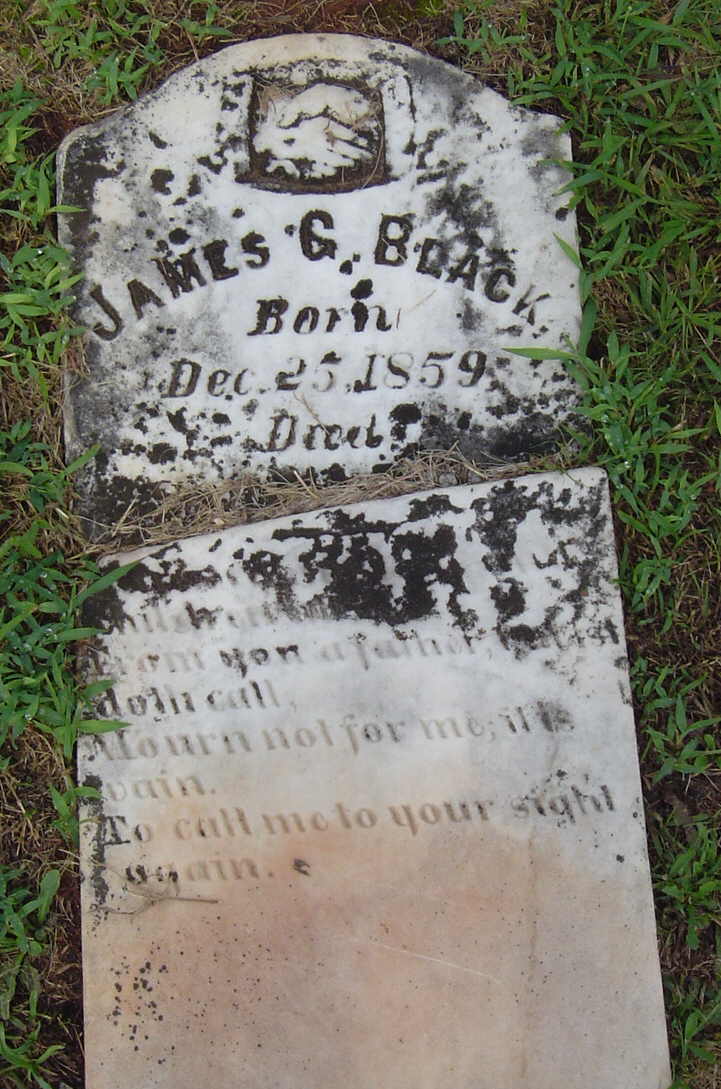 JAMES G. BLACK.
Born
Dec. 25, 1859
Died
children
From you a father,
doth call,
Mourn not for me, it is
vain.
To call me to your sight
again.